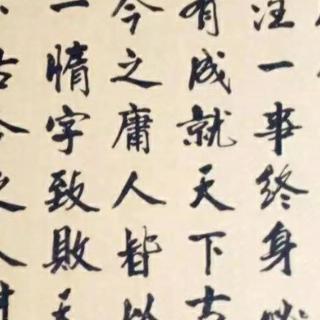 注一事終身
有成就天下古
今之庸人皆以
一惰字致敗天
古今之人